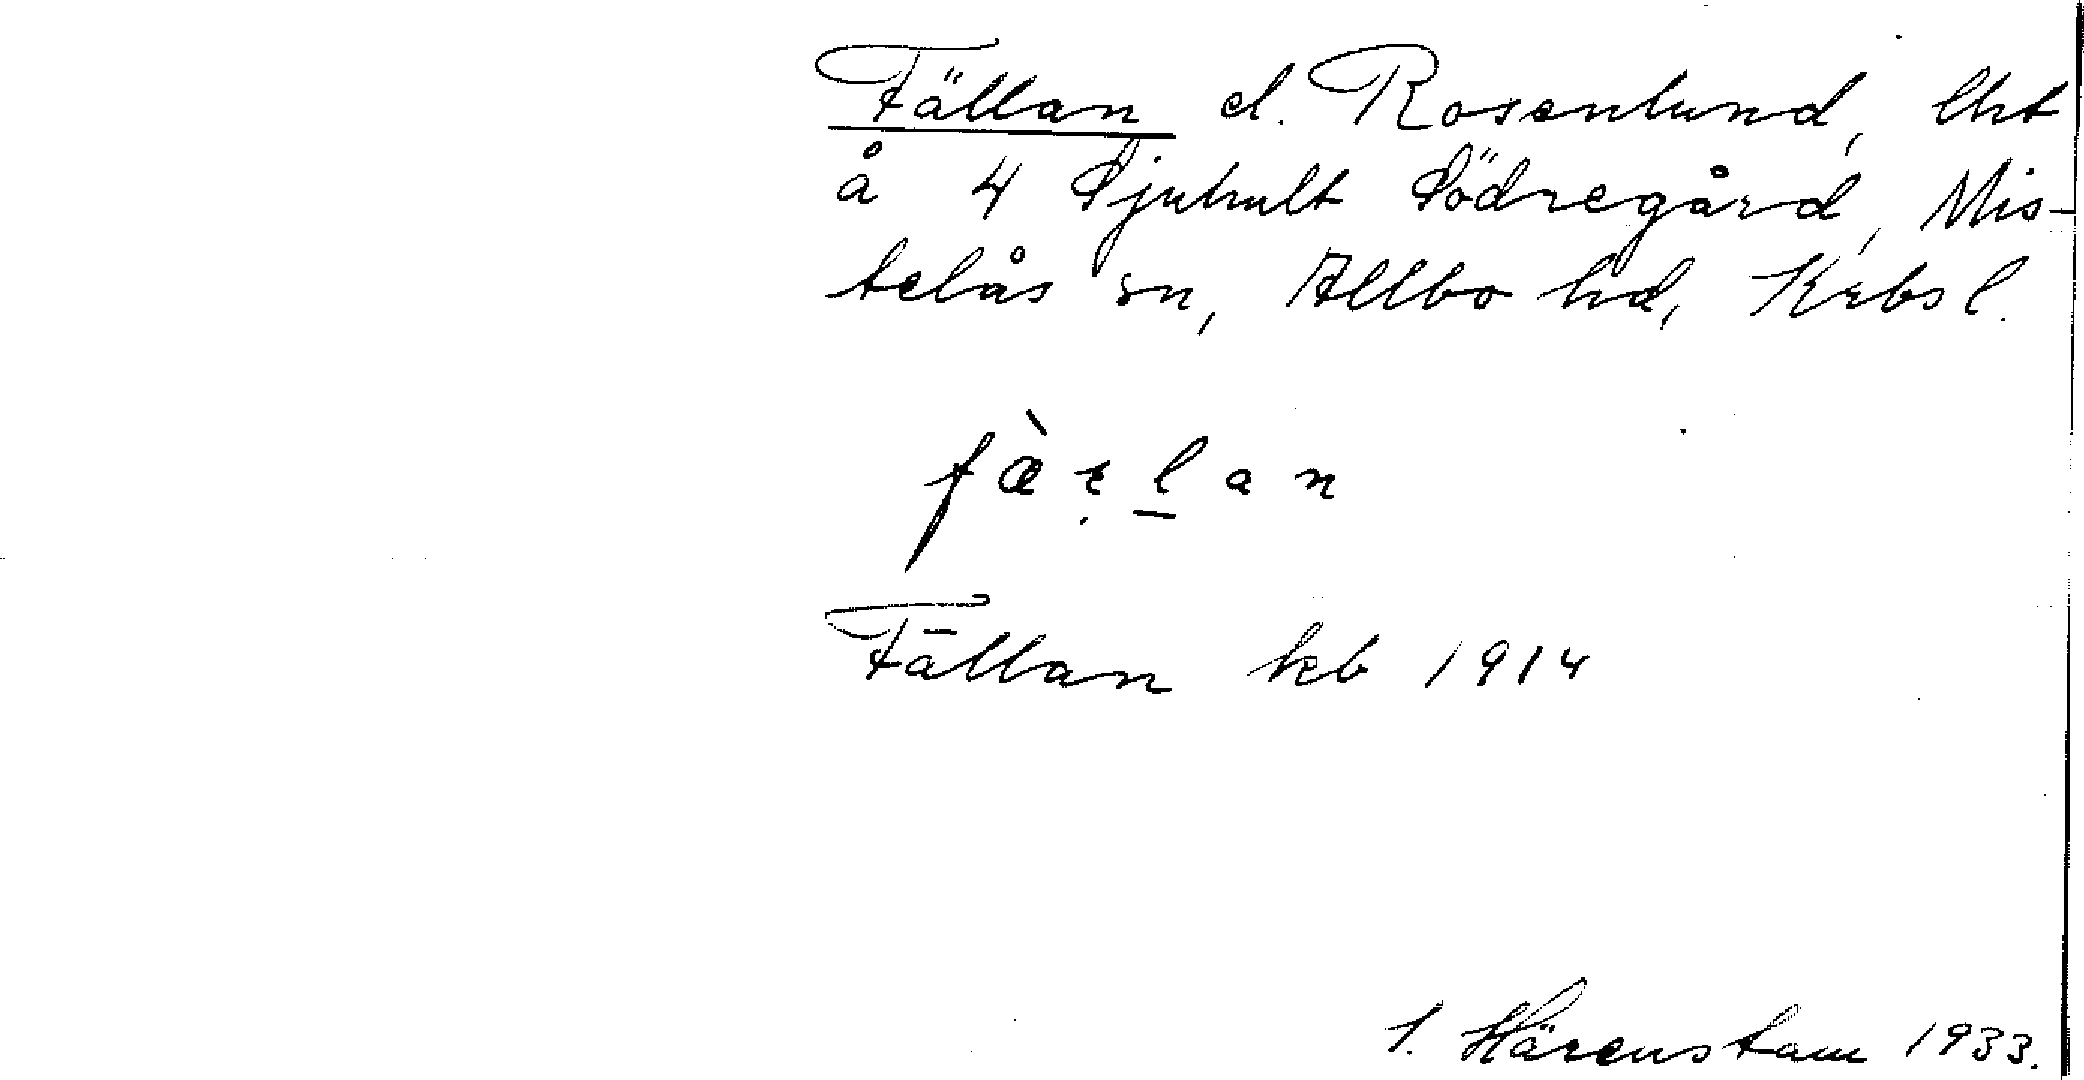 Fällan el. Rosenlund, lht
å 4 Sjuhult Södregård, Mis-
telås sn, Allbo hd, Krbs l.
fæ̀ṛl̲an
Fällan kb 1914
S. Härenstam 1933.